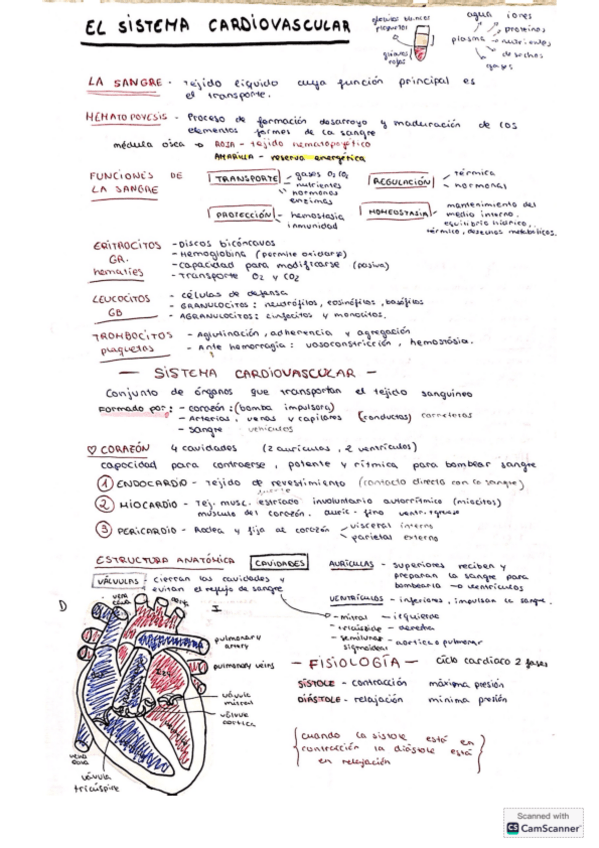 EL SISTEMA CARDIOVASCULAR
glóbulos blancos
plaquetas
glóbulos
rojos
plasma
agua
iones
proteinas
nutrientes
desechos
gases
LA SANGRE - Tejido liquido cuya función principal es
el transporte.
HEMATOPOYESIS - Proceso de formación desarroyo y maduración de los
elementos formes de la sangre
médula osea → ROJA - tejido hematopoyético
AMARILLA - reserva energética
FUNCIONES DE
LA SANGRE
TRANSPORTE
gases O2 CO2
nutrientes
hormonas
enzimas
REGULACIÓN
térmica
hormonas
PROTECCIÓN
hemostasia
inmunidad
HOMEOSTASIA
mantenimiento del
medio interno.
equilibrio hídrico,
térmico, desechos metabólicos.
ERITROCITOS
GR.
hematíes
- Discos bicóncavos
- Hemoglobina (permite oxidarse)
- Capacidad para modificarse (pasiva)
- Transporte O2 y CO2
LEUCOCITOS
GB
- células de defensa
- GRANULOCITOS: neutrófilos, eosinófilos, basófilos
- AGRANULOCITOS: linfocitos y monocitos.
TROMBOCITOS
plaquetas
- Aglutinación, adherencia y agregación
- Ante hemorragia: vasoconstricción, hemostásia.
— SISTEMA CARDIOVASCULAR —
Conjunto de órganos que transportan el tejido sanguineo
Formado por:
- corazón: (bomba impulsora)
- Arterias, venas y capilares (conductos) carreteras
- Sangre vehículos
♡ CORAZÓN 4 cavidades (2 auriculas, 2 ventrículos)
capacidad para contraerse, potente y rítmica para bombear sangre
① ENDOCARDIO - Tejido de revestimiento (contacto directo con la sangre)
② MIOCARDIO - Tej. musc. estriado involuntario autorrítmico (miocitos)
músculo del corazón. auric - fino ventr. grueso
③ PERICARDIO - Rodea y fija al corazón
visceral interno
parietal externo
ESTRUCTURA ANATÓMICA
CAVIDADES
AURÍCULAS - superiores reciben y
preparan la sangre para
bombearla → ventrículos
VENTRÍCULOS - inferiores, impulsan la sangre.
VÁLVULAS - cierran las cavidades y
evitan el reflujo de sangre
- mitral — izquierda
- tricúspide - derecha
- semilunar
sigmoidea
- aortica o pulmonar
D
I
vena
cava
aorta
pulmonary
artery
pulmonary veins
válvula
mitral
válvula
aortica
vena
cava
válvula
tricúspide
— FISIOLOGÍA — ciclo cardiaco 2 fases
SÍSTOLE - contracción máxima presión
DIÁSTOLE - relajación mínima presión
cuando la sistole está en
contracción la diástole está
en relajación
Scanned with
CS CamScanner